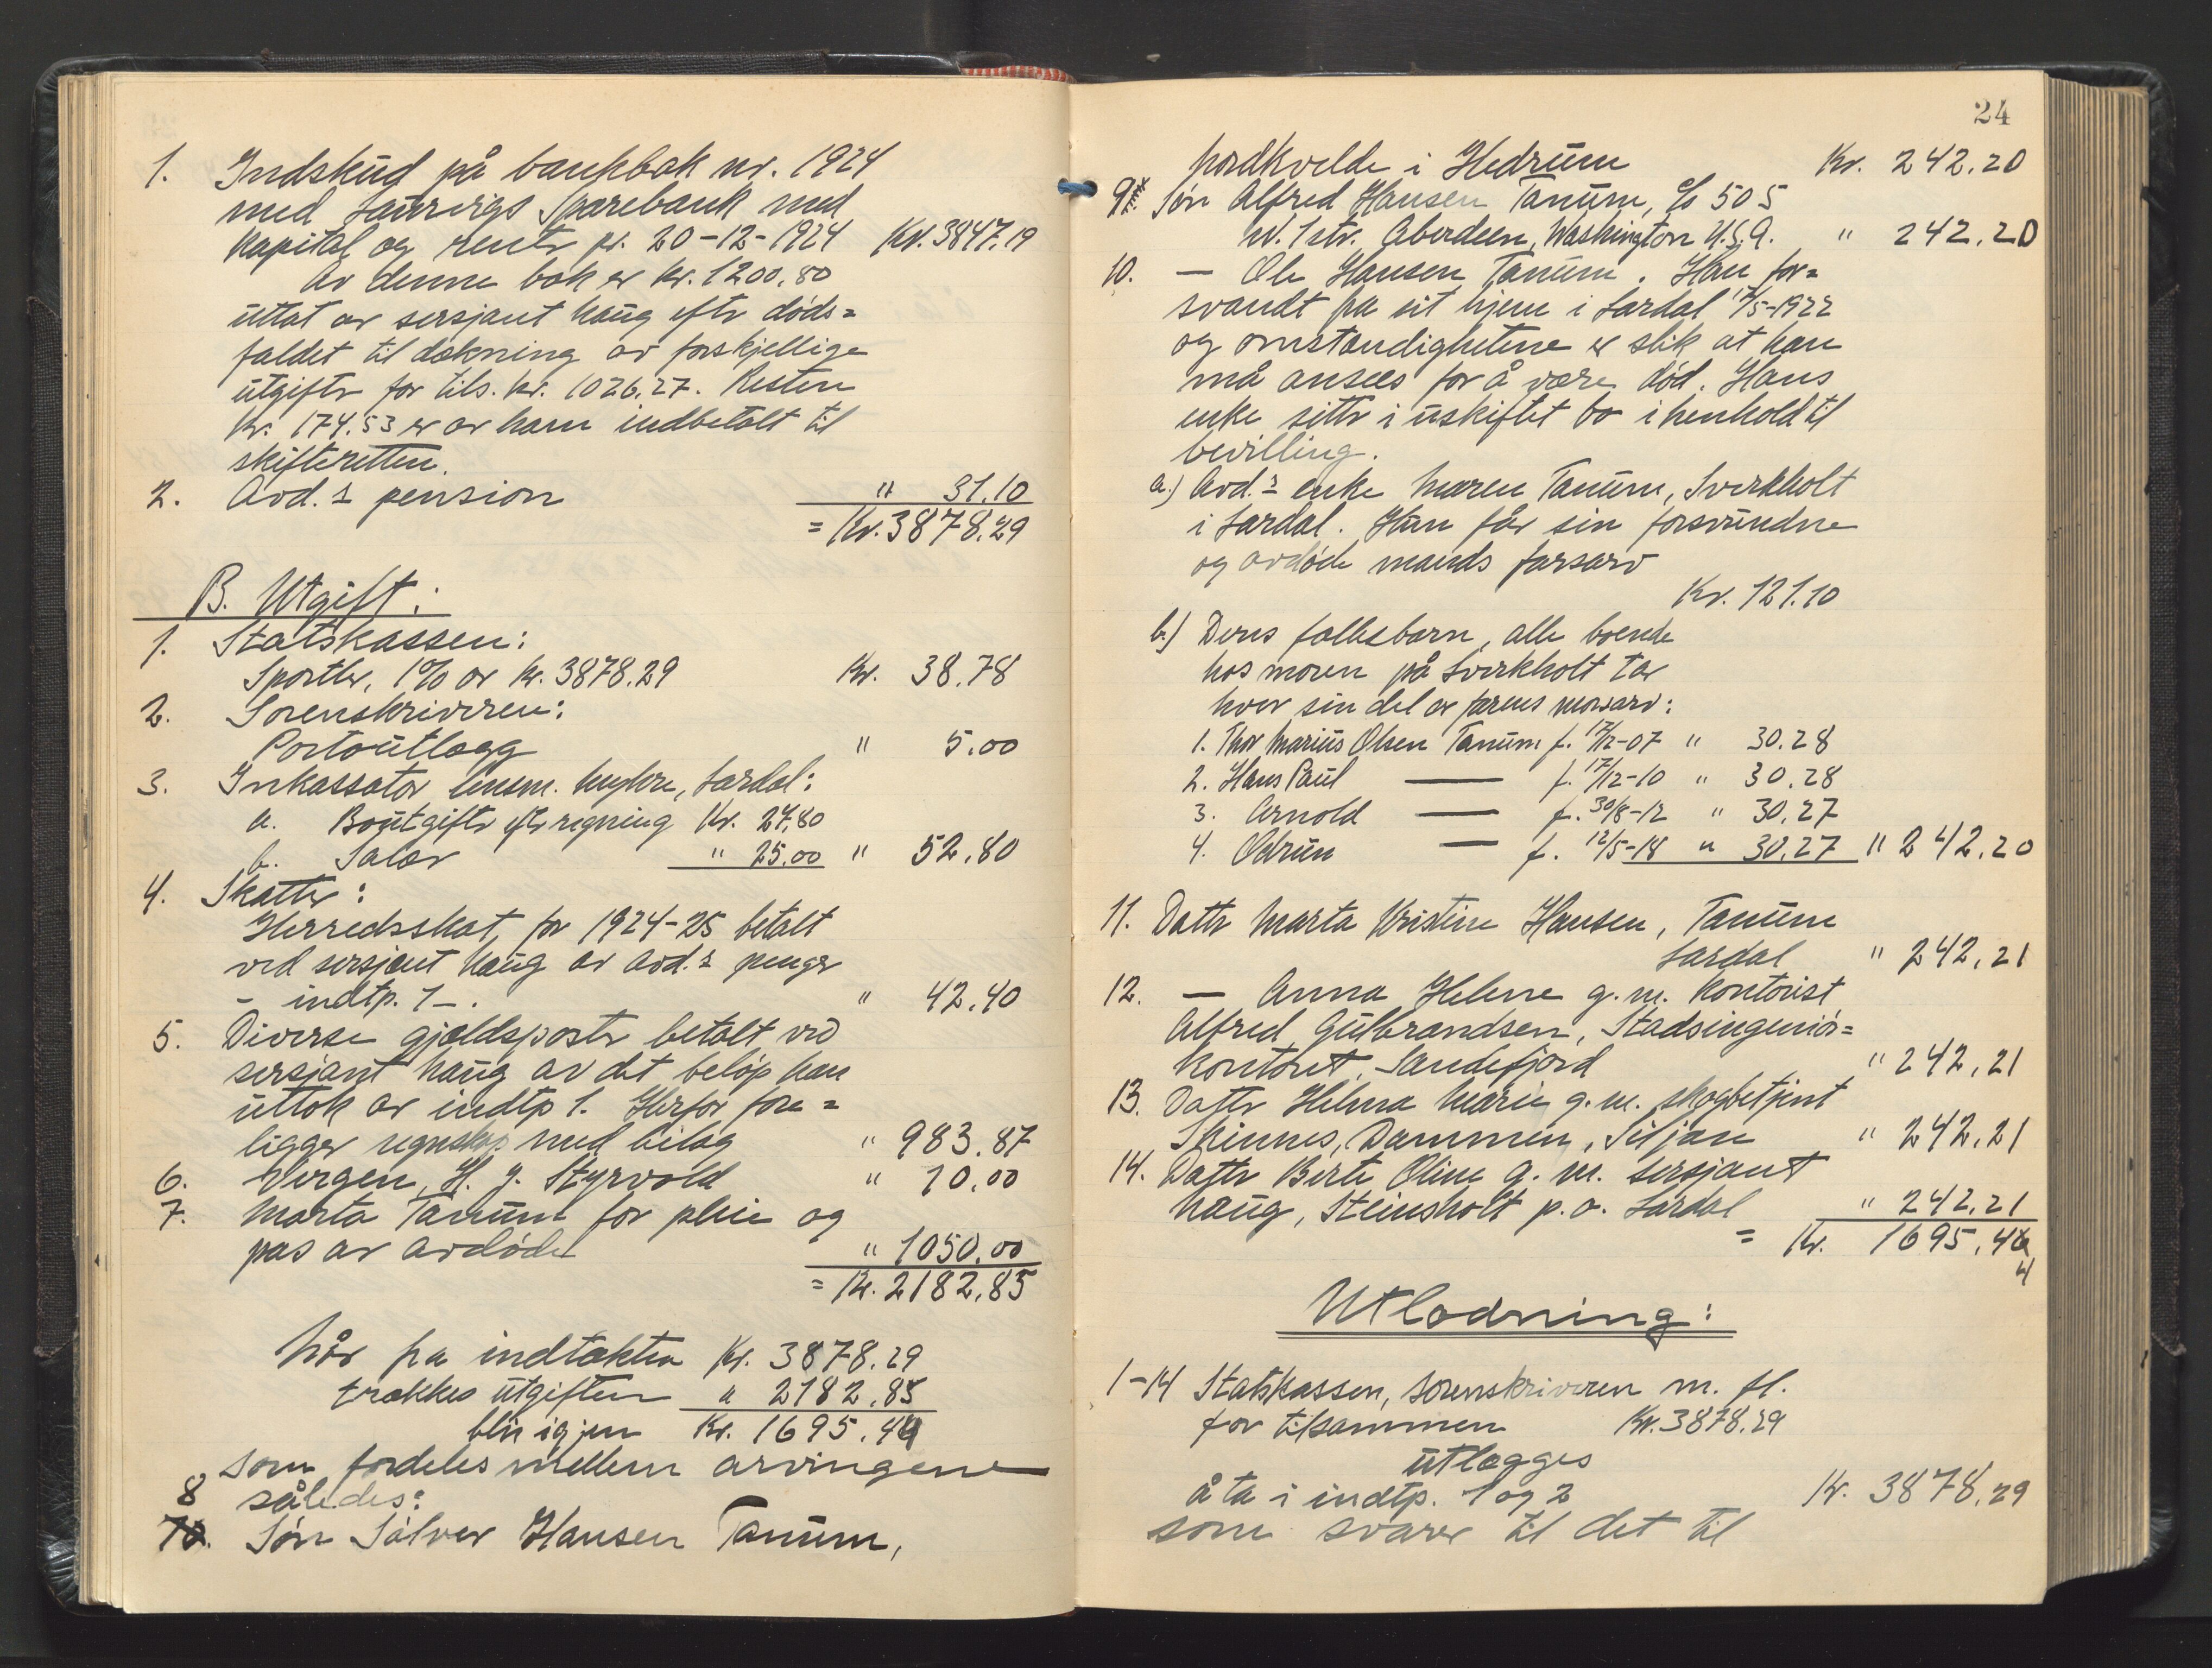 1. Indskud på bankbok nr. 1924
med Laurvigs Sparebank med
kapital og renter pr. 20-12-1924 Kr. 3847.19
Av denne bok er kr. 1200.80
uttat av sersjant Haug efter døds=
faldet til dækning av forskjellige
utgifter for tils. kr. 1026.27. Resten
kr. 174.53 er av ham indbetalt til
skifteretten.
2. Avd.s pension " 31.10
= Kr. 3878.29
B. Utgift:
1. Statskassen:
Sportler, 1% av kr. 3878.29 Kr. 38.78
2. Sorenskriveren:
Portoutlægg " 5.00
3. Inkassator lensm. Myhre, Lardal:
a. Boutgifter efter regning Kr. 27.80
b. Salær " 25.00 " 52.80
4. Skatter:
Herredsskat for 1924-25 betalt
ved sersjant Haug av avd.s penger
- indtp. 1 -. " 42.40
5. Diverse gjældsposter betalt ved
sersjant Haug av det beløp han
uttok av indtp 1. Herfor fore=
ligger regnskap med bilag " 983.87
6. Vergen, H. J. Styrvold " 10.00
7. Marta Tanum for pleie og
pas av avdøde " 1050.00
= Kr. 2182.85
Når fra indtækten Kr. 3878.29
trækkes utgiften " 2182.85
blir igjen Kr. 1695.44
som fordeles mellem arvingene
således:
8. Søn Sølver Hansen Tanum,
24
Nordkvelde i Hedrum Kr. 242.20
9. Søn Alfred Hansen Tanum, c/o 505
W. 1 str. Aberdeen, Washington U.S.A. " 242.20
10. — Ole Hansen Tanum. Han for=
svandt fra sit hjem i Lardal 17/5-1922
og omstændighetene er slik at han
må ansees for å være død. Hans
enke sitter i uskiftet bo i henhold til
bevilling.
a.) Avd.s enke Maren Tanum, Sverkholt
i Lardal. Hun får sin forsvundne
og avdøde mands farsarv
Kr. 121.10
b.) Deres fællesbarn, alle boende
hos moren på Sverkholt tar
hver sin del av farens morsarv:
1. Thor Marius Olsen Tanum f. 17/12-07 " 30.28
2. Hans Paul — f. 17/12-10 " 30.28
3. Arnold — f. 30/8-12 " 30.27
4. Odrun — f. 12/5-18 " 30.27 " 242.20
11. Datter Marta Kristine Hansen, Tanum
Lardal " 242.21
12. — Anna Helene g. m. kontorist
Alfred Gulbrandsen, Stadsingeniør=
kontoret, Sandefjord " 242.21
13. Datter Helma Marie g. m. skogbetjent
Skinnes, Dammen, Siljan " 242.21
14. Datter Berte Oline g. m. sersjant
Haug, Steinsholt p.o. Lardal " 242.21
= Kr. 1695.44
Utlodning:
1-14 Statskassen, sorenskriveren m. fl.
for tilsammen Kr. 3878.29
utlægges
å ta i indtp. 1 og 2 Kr. 3878.29
som svarer til det til